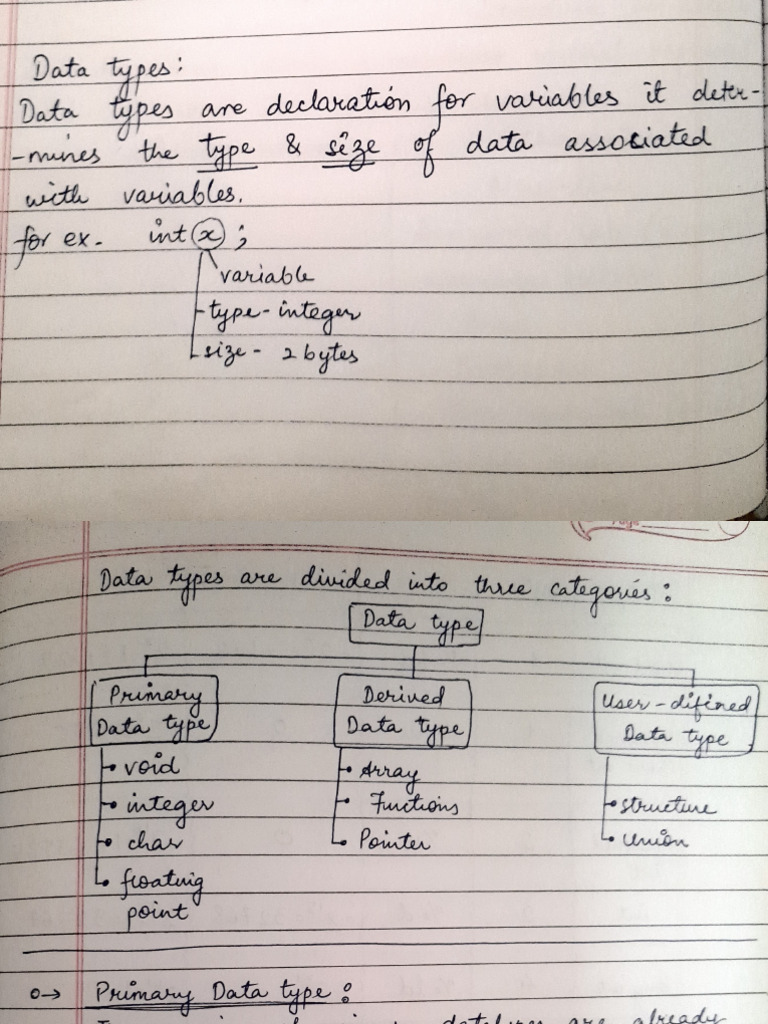 Data types:
Data types are declaration for variables it deter-
-mines the type & size of data associated
with variables.
for ex. int x ;
variable
type - integer
size - 2 bytes
Data types are divided into three categories:
Data type
Primary
Data type
void
integer
char
floating
point
Derived
Data type
Array
Functions
Pointer
User-difined
Data type
structure
union
Primary Data type :
are already